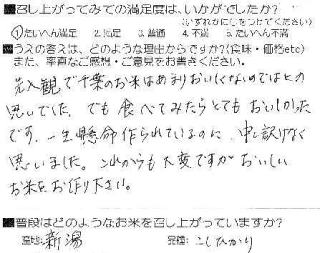 ■召し上がってみての満足度は、いかがでしたか?
(いずれかに○をつけてください)
①たいへん満足 2.満足 3.普通 4.不満 5.たいへん不満
■うえの答えは、どのような理由からですか?(食味・価格etc)
また、率直なご感想・ご意見をお書きください。
先入観で千葉のお米はあまりおいしくないのではとの
思いでした。でも食べてみたらとてもおいしかった
です。一生懸命作られているのに、申し訳なく
思いました。これからも大変ですがおいしい
お米をお作り下さい。
■普段はどのようなお米を召し上がっていますか?
産地:新潟 品種:こしひかり